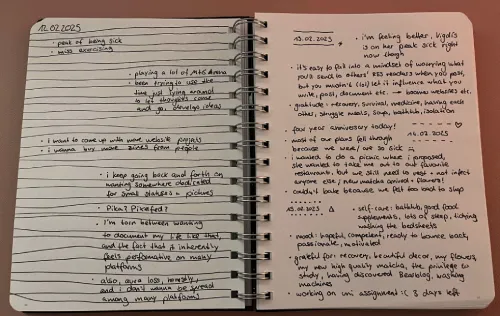 12.02.2025
· peak of being sick
· miss exercising
· playing a lot of MtG Arena
· been trying to use the
time just lying around
to let thoughts come
and go, develop ideas
· i want to come up with more website
· i wanna buy more zines from people
· i keep going back and forth on
wanting somewhere dedicated
for small statuses + pictures
· Pika? Pixelfed?
· i'm torn between wanting
to document my life like that,
and the fact that it inherently
feels performative on many
platforms
also, aura loss, honestly,
and i don't wanna be spread
among many platforms
13.02.2025
· i'm feeling better,
is on her peak sick right
now though
· it's easy to fall into a mindset of worrying what
you'll send to others' RSS readers when you post,
but you mustn't (lol) let it influence what you
write, post, document etc. → boomer websites etc.
· gratitude: recovery, survival, medicine, having each
other, struggle meals, soup, bathtub, isolation
· four year anniversary today!
14.02.2025
· most of our plans fell through
because we were/are so sick
· i wanted to do a picnic where i proposed,
she wanted to take me out to our favorite
restaurants, but we still need to rest + not infect
anyone else / new matcha arrived + flowers!
· couldn't bake because we felt too weak to shop
15.02.2025
· self-care: bathtub, good food,
supplements, lots of sleep, tidying,
washing the bedsheets
· mood: hopeful, competent, ready to bounce back,
passionate, motivated
· grateful for: recovery, beautiful decor, my flowers,
my new high quality matcha, the privilege to
study, having discovered Bearblog, washing
machines
· working on uni assignment :( 8 days left